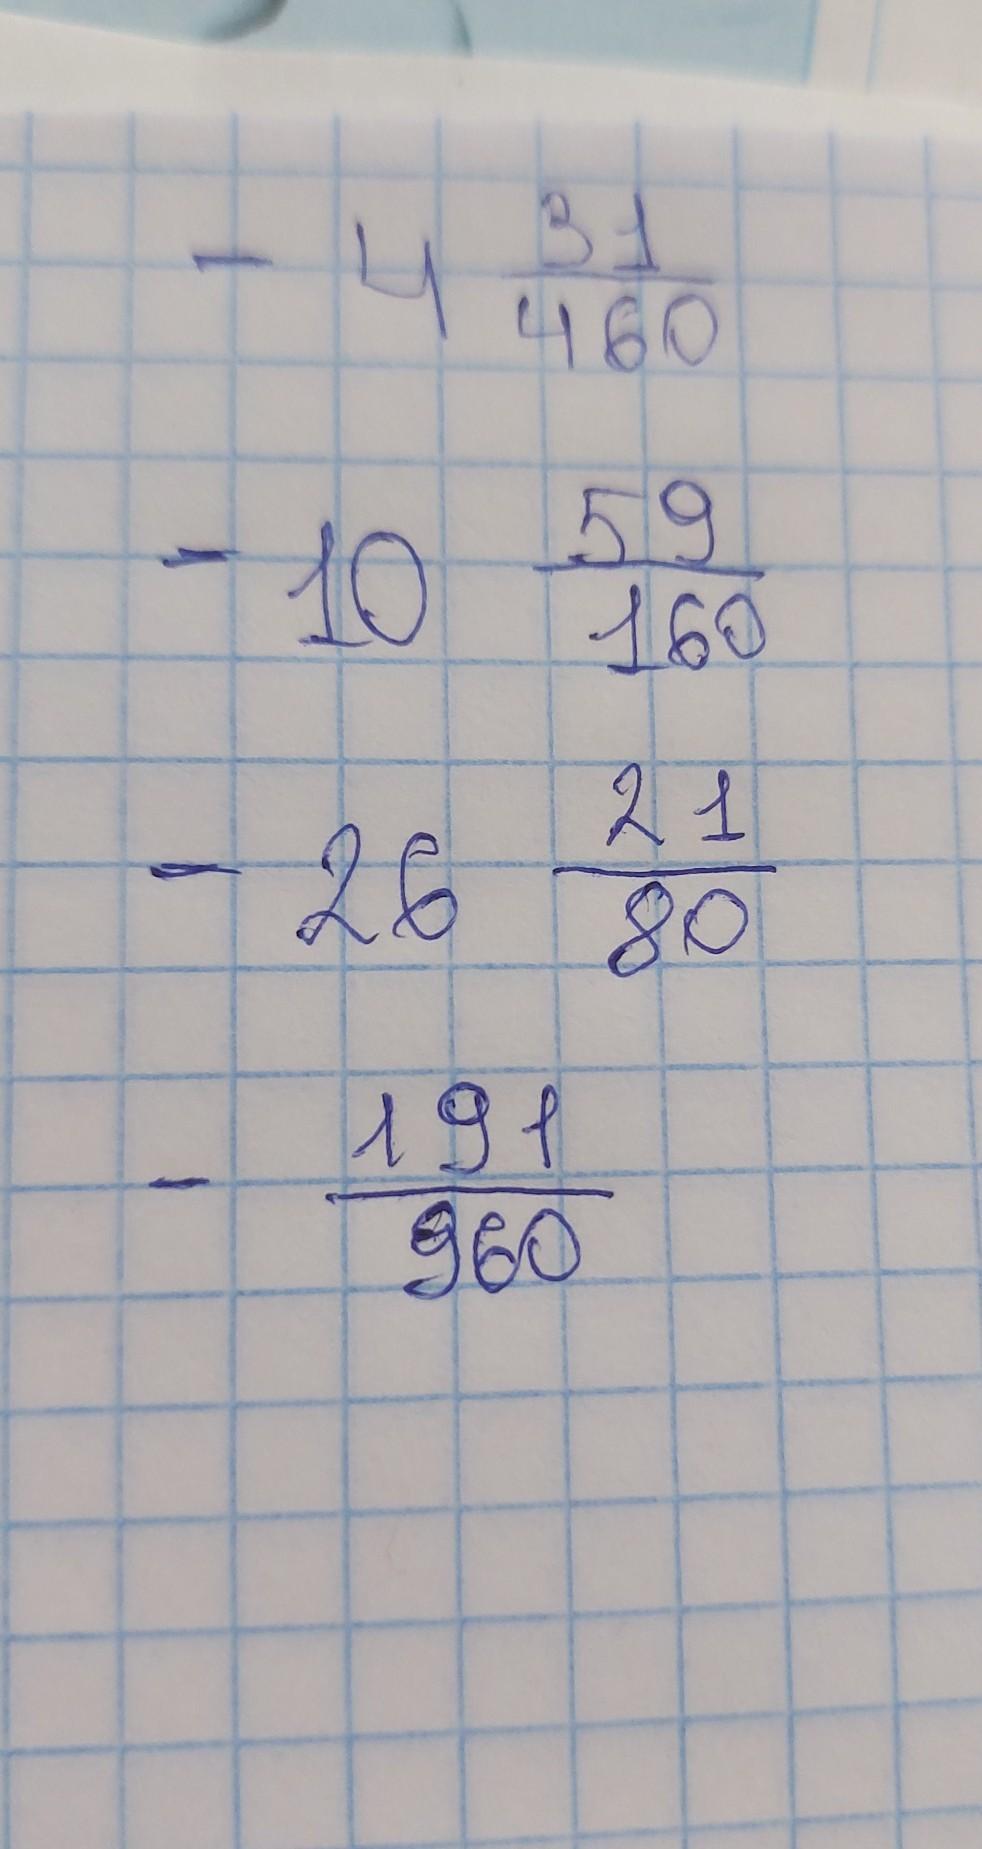 - 4 31/460
- 10 59/160
- 26 21/80
- 191/960